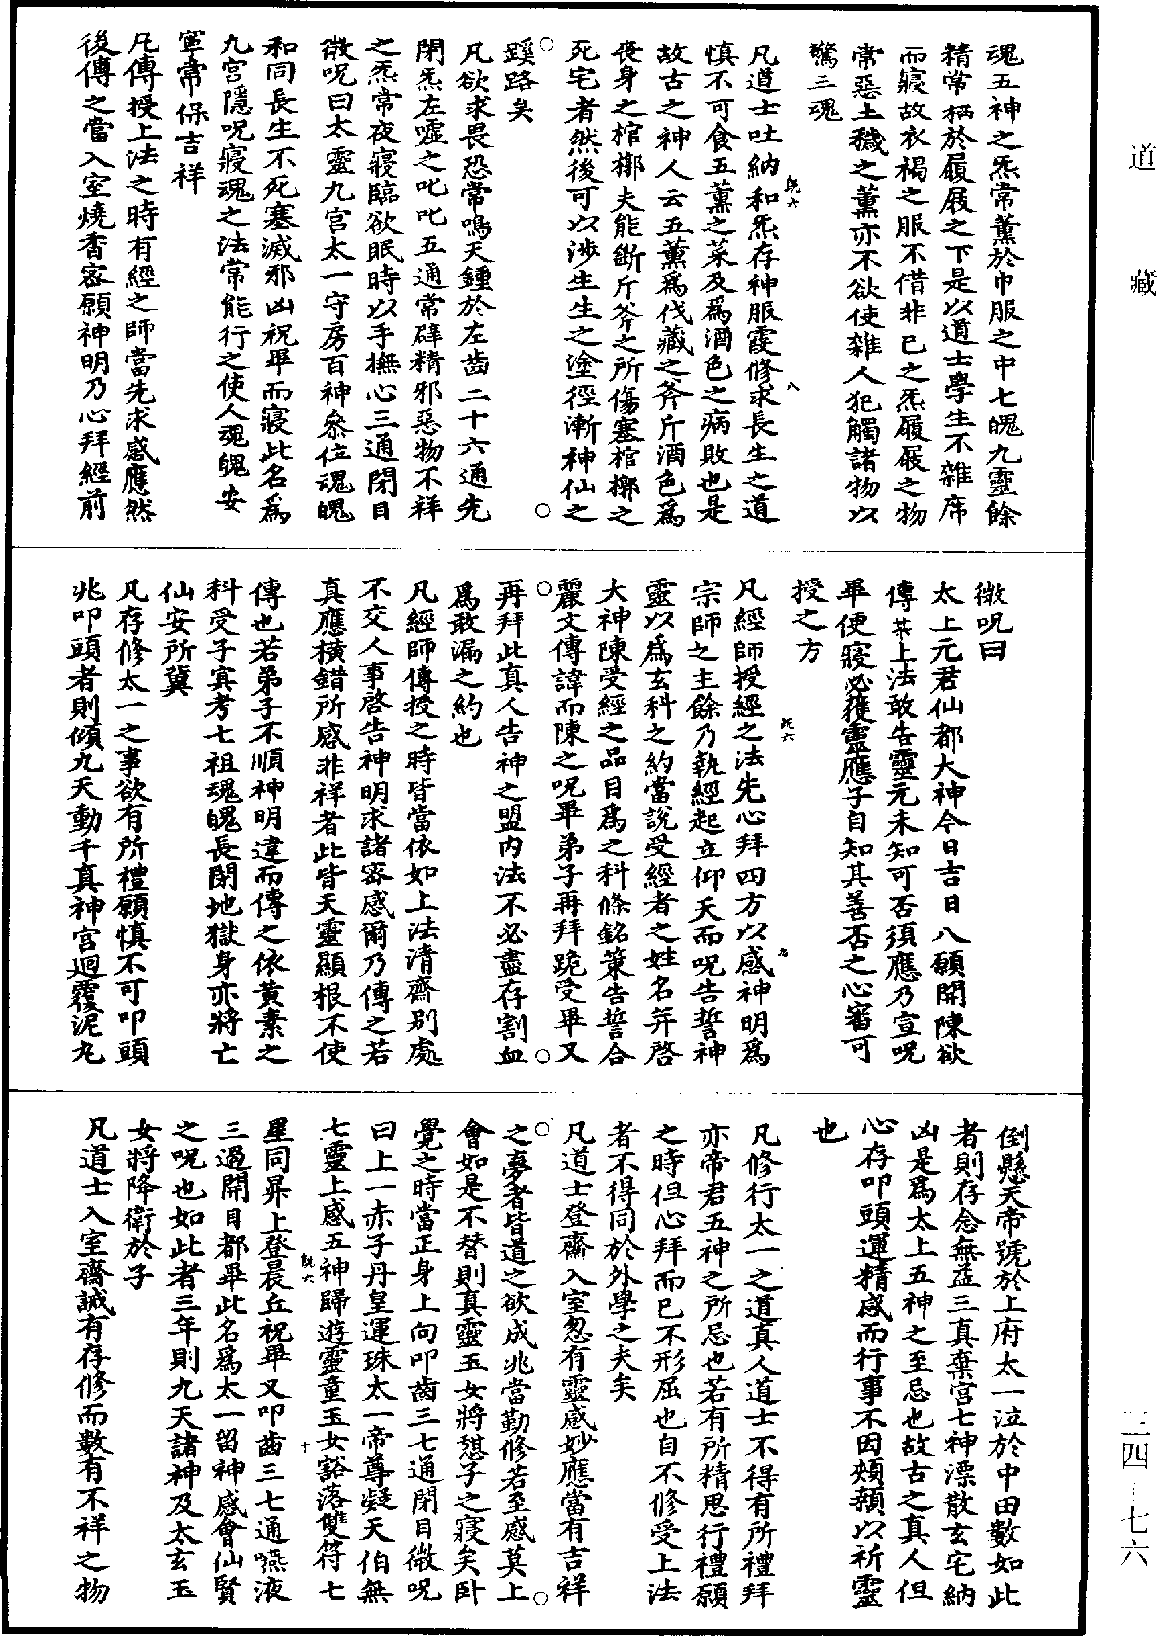 道藏
三四—七六
魂五神之炁常薰於巾服之中七魄九靈餘
精常栖於履屐之下是以道士學生不雜席
而寢故衣褐之服不借非已之炁履屐之物
常惡土穢之薰亦不欲使雜人犯觸諸物以
驚三魂
凡道士吐納和炁存神服霞修求長生之道
慎不可食五薰之菜及爲酒色之病敗也是
故古之神人云五薰爲伐藏之斧斤酒色爲
喪身之棺槨夫能斷斤斧之所傷塞棺槨之
死宅者然後可以涉生生之塗徑漸神仙之
蹊路矣
凡欲求畏恐常鳴天鍾於左齒二十六通先
閉炁左噓之叱叱五通常辟精邪惡物不祥
之炁常夜寢臨欲眠時以手撫心三通閉目
微呪曰太靈九宮太一守房百神叅位魂魄
和同長生不死塞滅邪凶祝畢而寢此名爲
九宮隱呪寢魂之法常能行之使人魂魄安
寧常保吉祥
凡傳授上法之時有經之師當先求感應然
後傳之當入室燒香密願神明乃心拜經前
微呪曰
太上元君仙都大神今日吉日八願開陳欲
傳某上法敢告靈元未知可否須應乃宣呪
畢便寢必獲靈應子自知其善否之心審可
授之方
凡經師授經之法先心拜四方以感神明爲
宗師之主餘乃執經起立仰天而呪告誓神
靈以爲玄科之約當說受經者之姓名并啓
大神陳受經之品目爲之科條銘策告誓合
麗文傳諱而陳之呪畢弟子再拜跪受畢又
再拜此真人告神之盟內法不必盡存割血
爲敢漏之約也
凡經師傳授之時皆當依如上法清齋別處
不交人事啓告神明求諸密感爾乃傳之若
真應橫錯所感非祥者此皆天靈顯根不使
傳也若弟子不順神明違而傳之依黃素之
科受子寘考七祖魂魄長閉地獄身亦將亡
仙安所冀
凡存修太一之事欲有所禮願慎不可叩頭
兆叩頭者則傾九天動千真神宮迴覆泥丸
倒懸天帝號於上府太一泣於中田數如此
者則存念無益三真棄宮七神漂散玄宅納
凶是爲太上五神之至忌也故古之真人但
心存叩頭運精感而行事不因頰顙以祈靈
也
凡修行太一之道真人道士不得有所禮拜
亦帝君五神之所忌也若有所精思行禮願
之時但心拜而已不形屈也自不修受上法
者不得同於外學之夫矣
凡道士登齋入室忽有靈感妙應當有吉祥
之夢者皆道之欲成兆當勤修若至感莫上
會如是不替則真靈玉女將憇子之寢矣卧
覺之時當正身上向叩齒三七通閉目微呪
曰上一赤子丹皇運珠太一帝尊凝天伯無
七靈上感五神歸遊靈童玉女豁落雙符七
星同昇上登晨丘祝畢又叩齒三七通嚥液
三過開目都畢此名爲太一留神感會仙賢
之呪也如此者三年則九天諸神及太玄玉
女將降衛於子
凡道士入室齋誡有存修而數有不祥之物